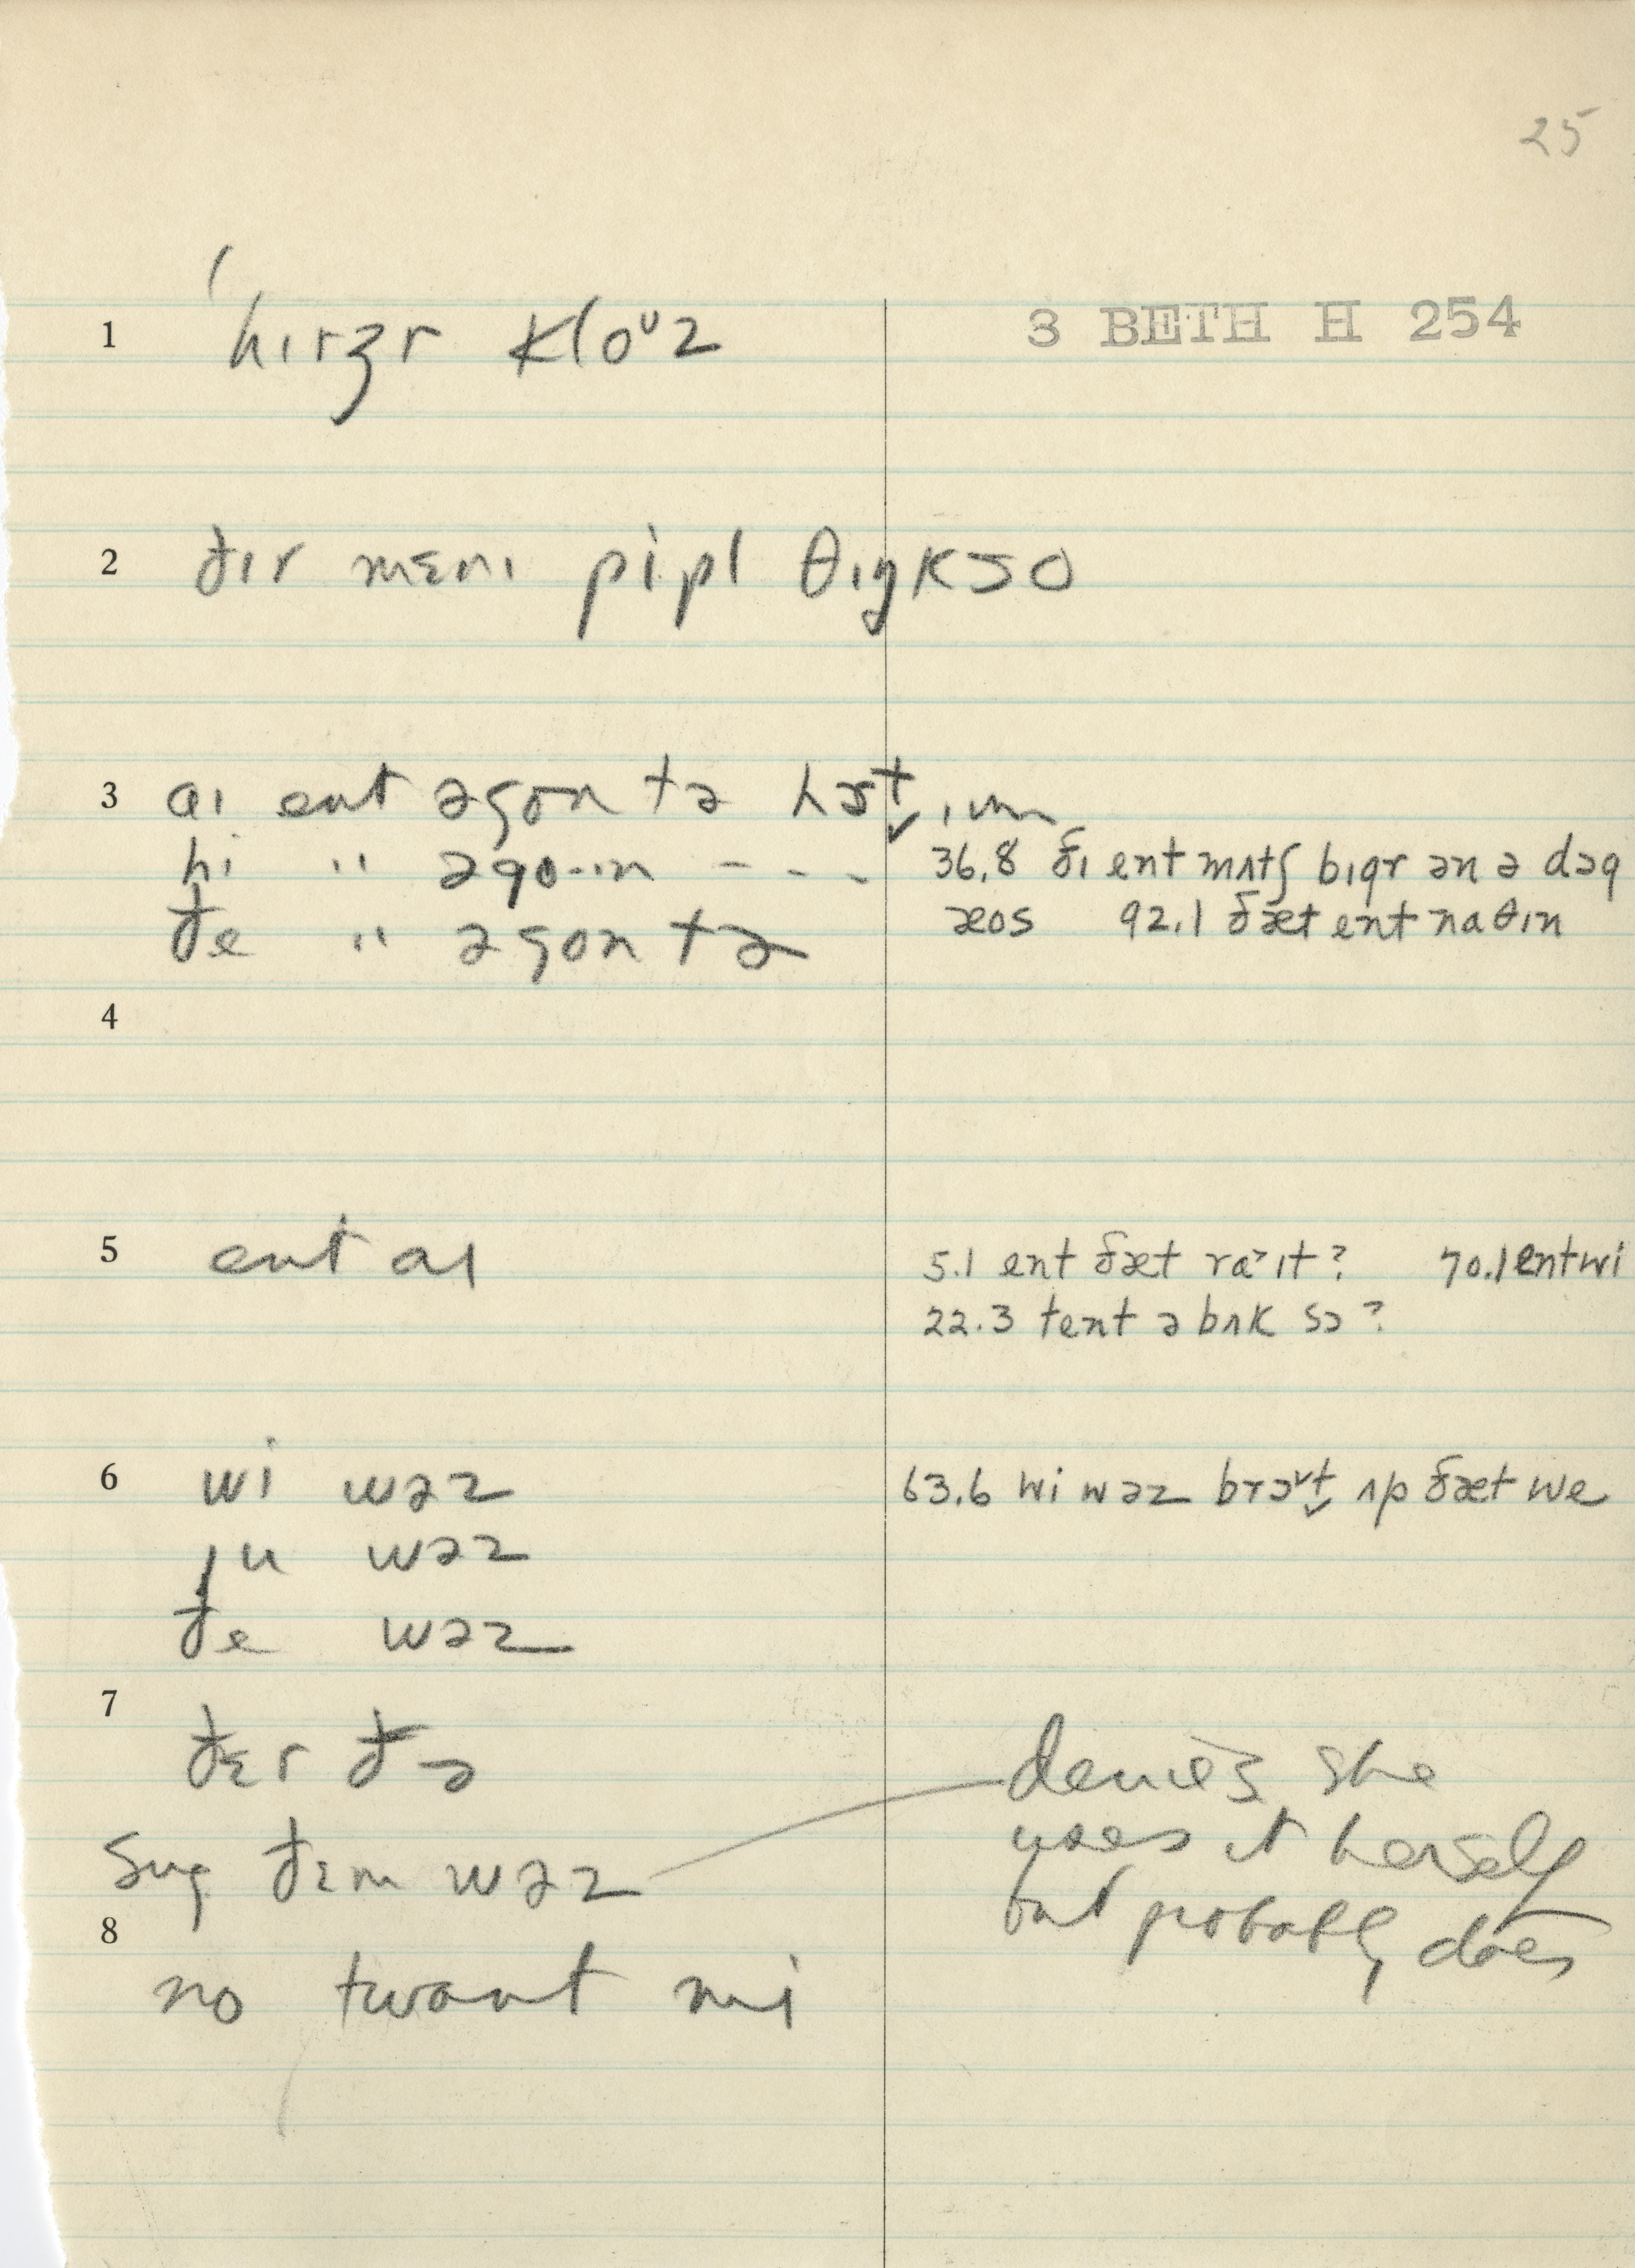 25
3 BETH H 254
1 hɪrzɚ kloᶷz
2 ðɪr mɛnɪ pipl θɪŋkso
3 aɪ ent əgon tə hɜt ɪm
hi " əgo··ɪn - - -
36.8 ðɪ ent mʌtʃ bɪgr ən ə dɔg
ðe " əgon tə
æos 92.1 ðæt ent naθɪn
4
5 ent aɪ
5.1 ent ðæt raˀɪt? 70.1 entwi
22.3 tent ə bʌk sɔ?
6 wi wəz
63.6 wi wəz brɔᵛt ʌp ðæt we
ju wəz
ðe wəz
7
ðɛr ðə
denies she
uses it herself
sug ðɛm wəz
but probably does
8
no twant mi